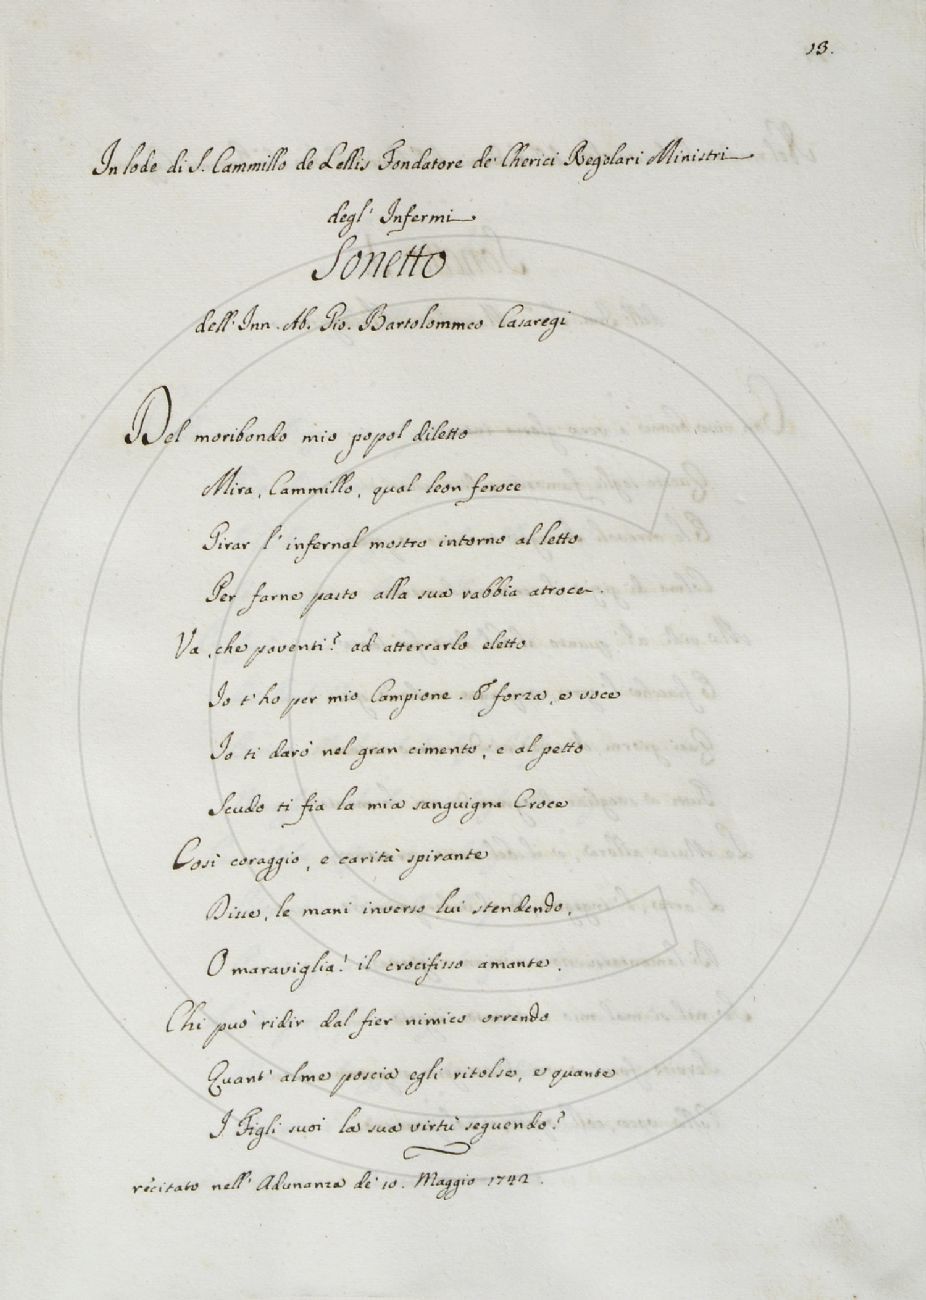 13.
In lode di S. Cammillo de Lellis Fondatore de' Cherici Regolari Ministri
degl' Infermi
Sonetto
dell' Inn. Ab. Gio. Bartolommeo Casaregi
Del moribondo mio popol diletto
Mira, Cammillo, qual leon feroce
Girar l' infernal mostro intorno al letto
Per farne pasto alla sua rabbia atroce.
Va, che paventi? ad atterrarlo eletto
Io t' ho per mio Campione. E forza, e voce
Io ti darò nel gran cimento, e al petto
Scudo ti fia la mia sanguigna Croce
Così coraggio, e carità spirante
Disse, le mani inverso lui stendendo,
O maraviglia! il crocifisso amante.
Chi può ridir dal fier nimico orrendo
Quant' alme poscia egli ritolse, e quante
I Figli suoi la sua virtù seguendo?
recitato nell' Adunanza de' 10. Maggio 1742.